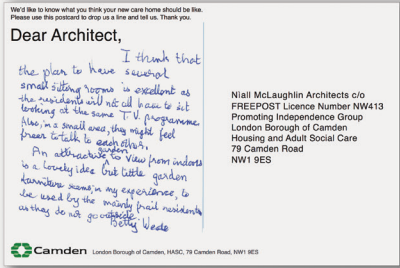 We'd like to know what you think your new care home should be like.
Please use this postcard to drop us a line and tell us. Thank you.
Dear Architect,
I think that
the plan to have several
small sitting rooms is excellent as
the residents will not all have to sit
looking at the same T.V. programme.
Also, in a small area, they might feel
freer to talk to each other.
garden
An attractive view from indoors
is a lovely idea but little garden
furniture seems, in my experience, to
be used by the mainly frail residents
as they do not go outside.
Betty Wede
Niall McLaughlin Architects c/o
FREEPOST Licence Number NW413
Promoting Independence Group
London Borough of Camden
Housing and Adult Social Care
79 Camden Road
NW1 9ES
Camden
London Borough of Camden, HASC, 79 Camden Road, NW1 9ES